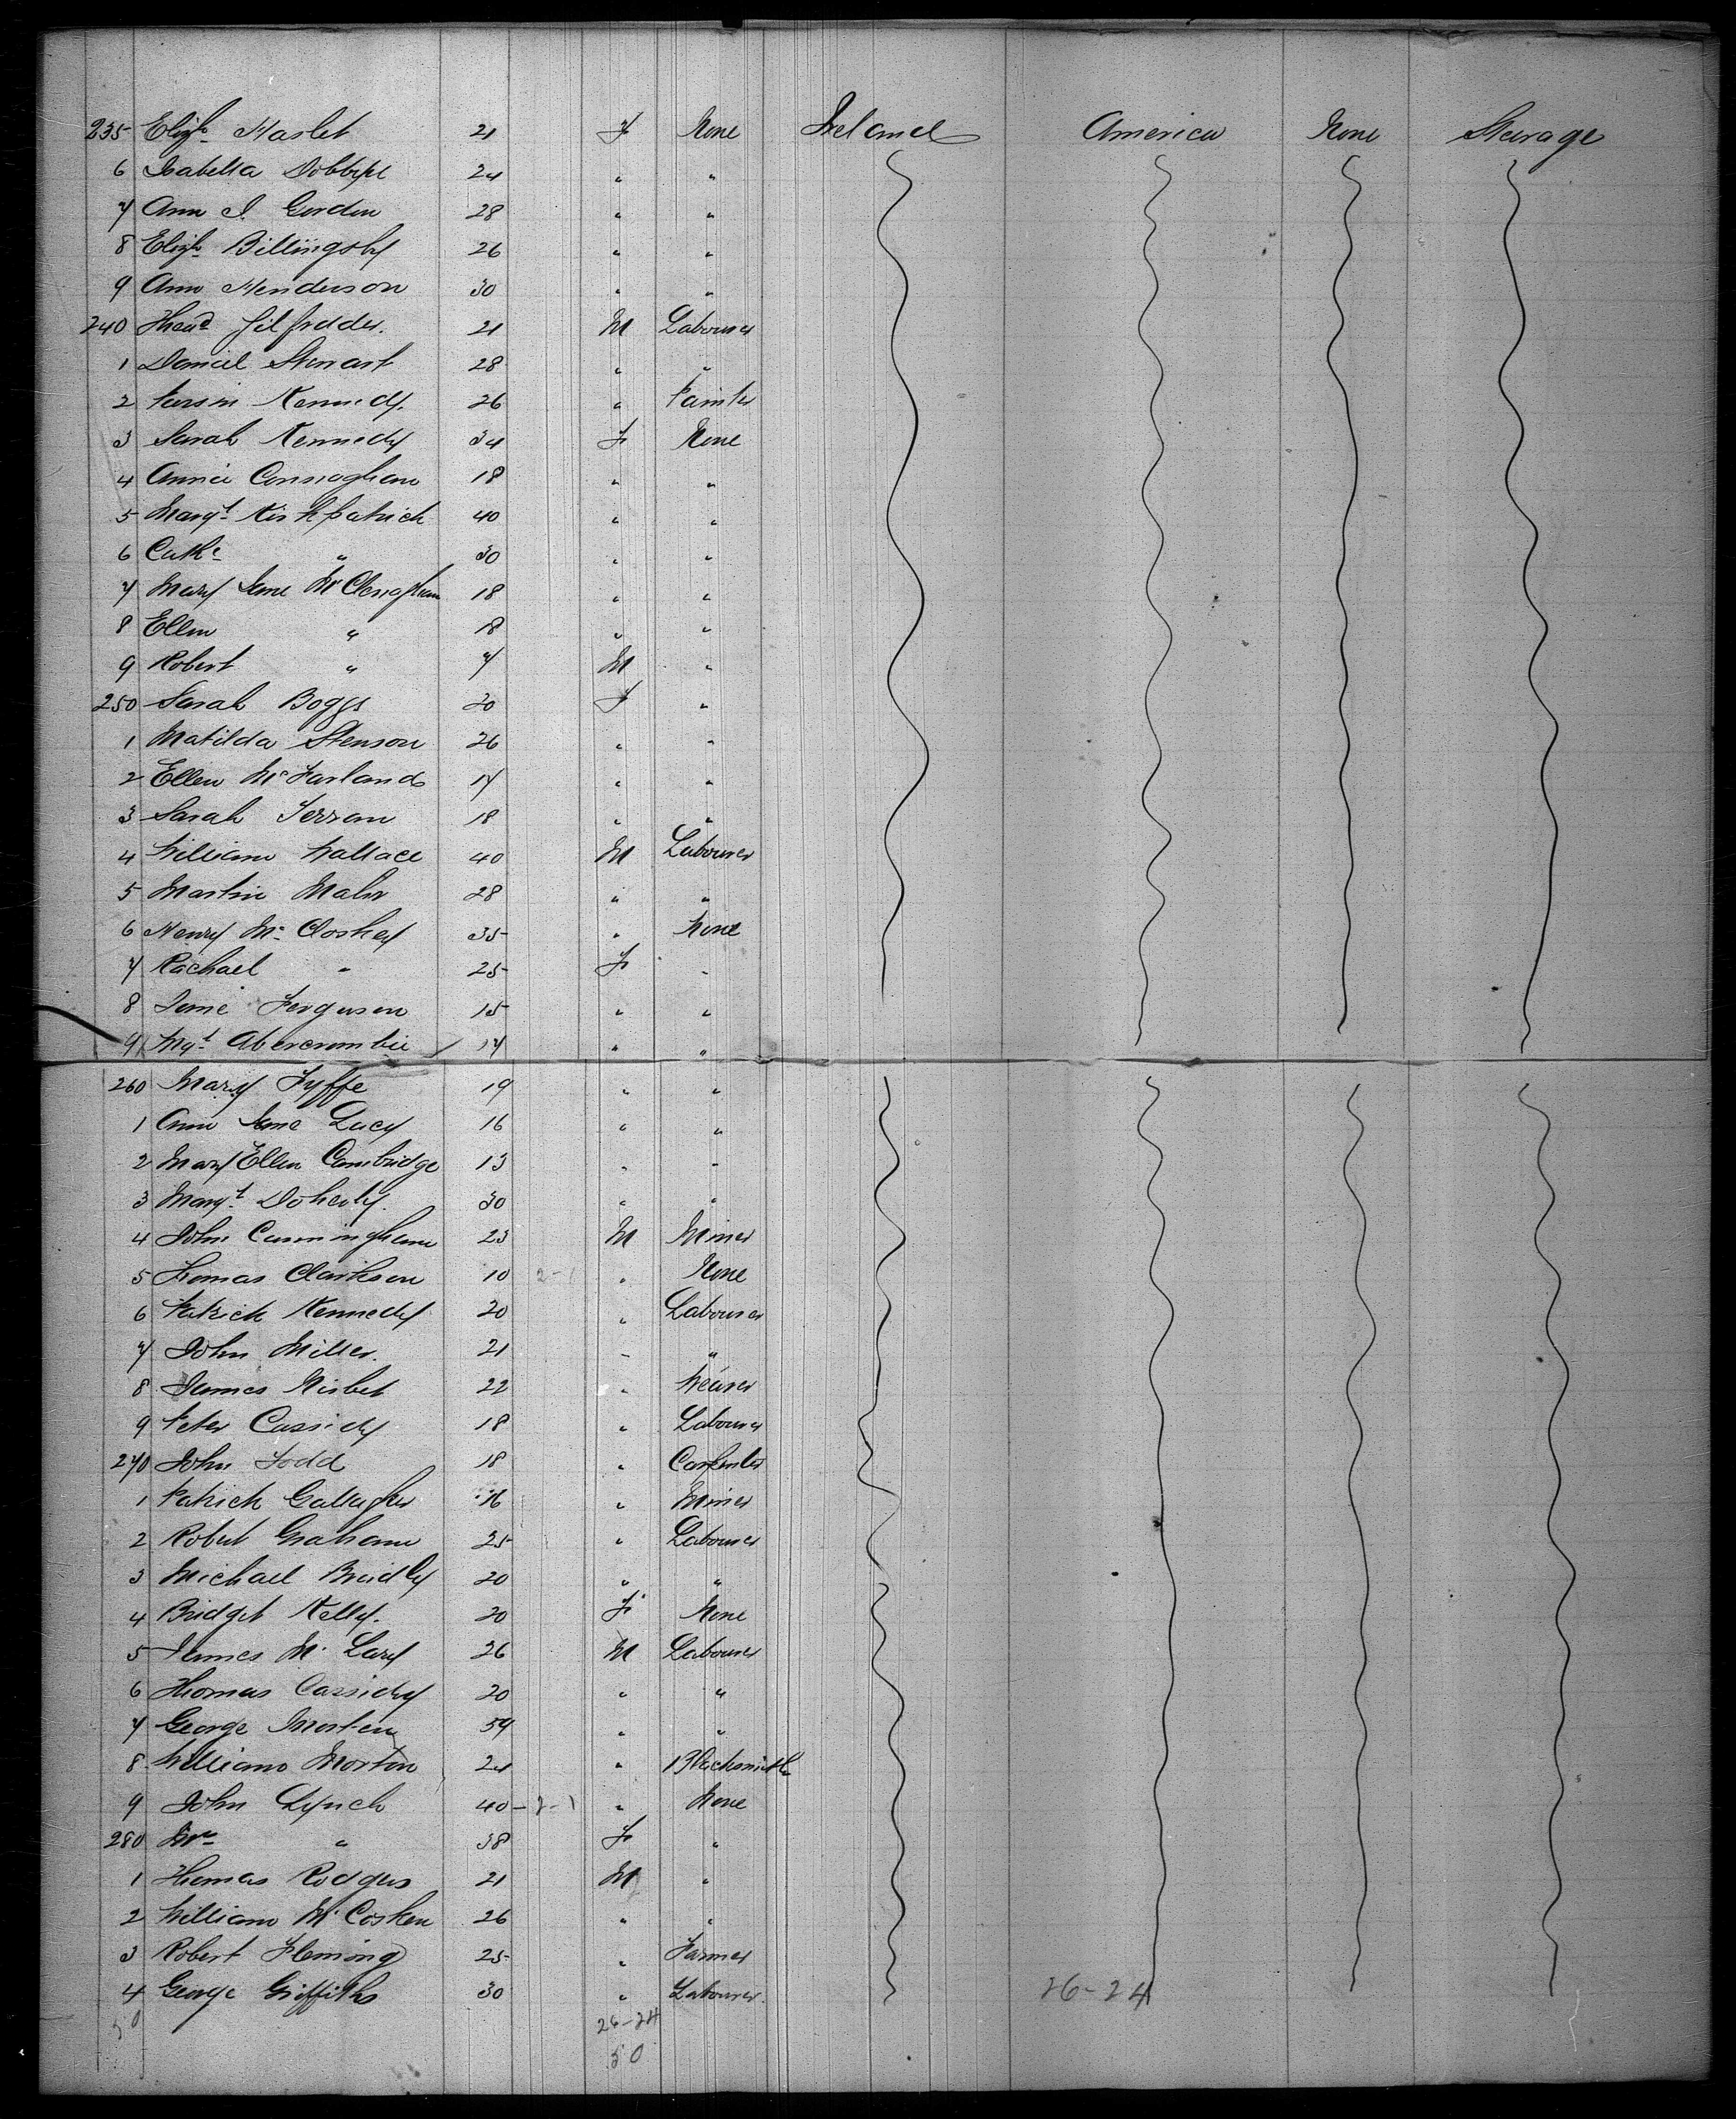 235 Elizh Haslet 21 F None Ireland America None Steerage
6 Isabella 24 " "
7 Ann J. Gordon 28 " "
8 Elizh Billingsby 26 " "
9 Ann Henderson 30 " "
240 21 M Labourer
1 Daniel Stewart 28 " "
2 Kennedy. 26 " Painter
3 Sarah Kennedy 34 F None
4 Annie Connaghan 18 " "
5 Margt Kirkpatrick 40 " "
6 Cathe " 30 " "
7 Mary Jane McClenaghan 18 " "
8 Ellen " 18 " "
9 Robert " 7 M "
250 Sarah Boggs 20 F "
1 Matilda Stenson 26 " "
2 Ellen McFarland 17 " "
3 Sarah Ferran 18 " "
4 William Wallace 40 M Labourer
5 Martin Maher 28 " "
6 Henry McCloskey 35 " None
7 Rachael " 25 F "
8 Jane Ferguson 15 " "
9 Mgt Abercrombie 17 " "
260 Mary Fyffe 19 " "
1 Ann Jane Lucy 16 " "
2 Mary Ellen Cambridge 13 " "
3 Margt Doherty. 30 " "
4 John Cunningham 23 M Miner
5 Thomas Clarkson 10 2-1 " None
6 Patrick Kennedy 20 " Labourer
7 John Miller. 21 " "
8 James Nisbet 22 " Weaver
9 Peter Cassidy 18 " Labourer
270 John Todd 18 " Carpenter
1 Patrick Gallagher 16 " Miner
2 Robert Graham 25 " Labourer
3 Michael Bradly 20 " "
4 Bridget Kelly. 20 F None
5 James McLary 26 M Labourer
6 Thomas Cassidy 20 " "
7 George Morton 59 " "
8 William Morton 24 " Blacksmith
9 John Lynch 40 - 2-1 " None
280 Mrs " 38 F "
1 Thomas Rodgers 21 M "
2 William McCosken 26 " "
3 Robert Fleming 25 " Farmer
4 George Griffiths 30 " Labourer. 26-24
50 26-24
50